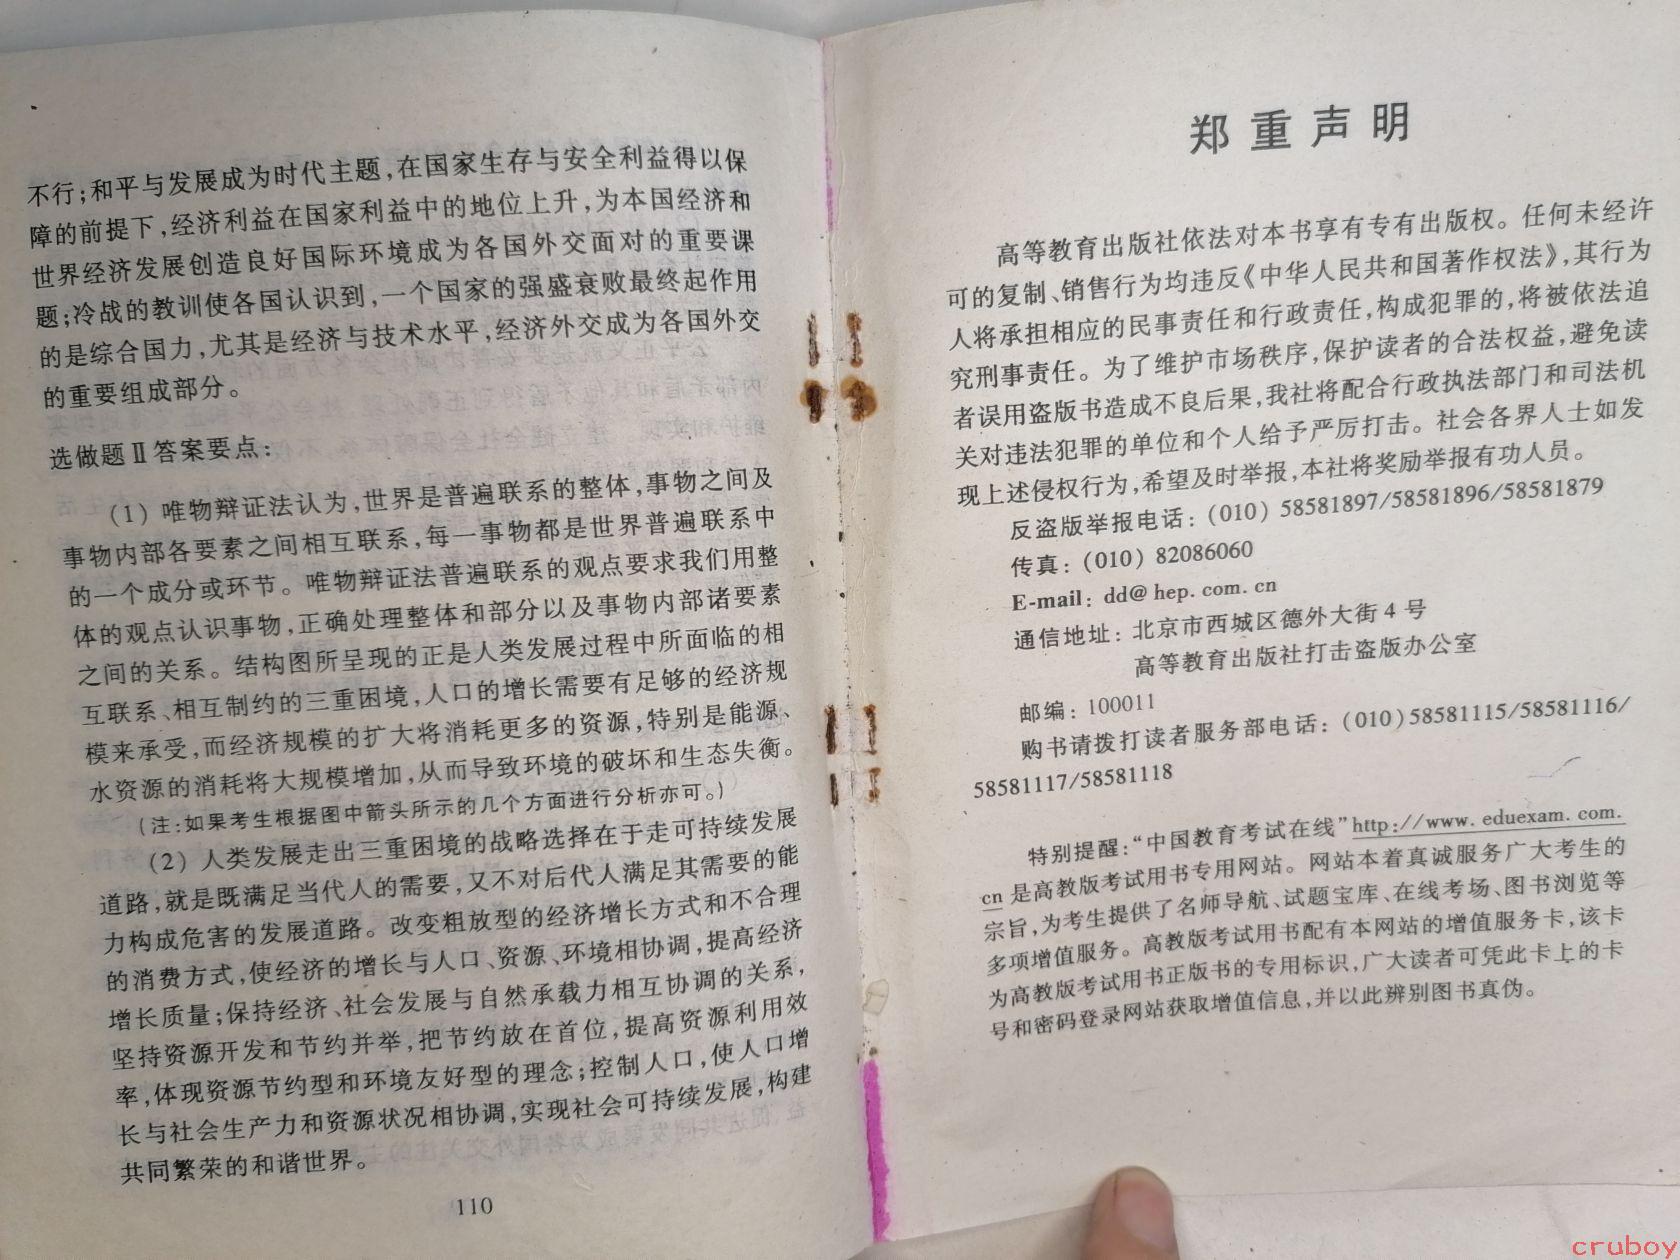 不行；和平与发展成为时代主题，在国家生存与安全利益得以保
障的前提下，经济利益在国家利益中的地位上升，为本国经济和
世界经济发展创造良好国际环境成为各国外交面对的重要课
题；冷战的教训使各国认识到，一个国家的强盛衰败最终起作用
的是综合国力，尤其是经济与技术水平，经济外交成为各国外交
的重要组成部分。
选做题Ⅱ答案要点：
（1）唯物辩证法认为，世界是普遍联系的整体，事物之间及
事物内部各要素之间相互联系，每一事物都是世界普遍联系中
的一个成分或环节。唯物辩证法普遍联系的观点要求我们用整
体的观点认识事物，正确处理整体和部分以及事物内部诸要素
之间的关系。结构图所呈现的正是人类发展过程中所面临的相
互联系、相互制约的三重困境，人口的增长需要有足够的经济规
模来承受，而经济规模的扩大将消耗更多的资源，特别是能源、
水资源的消耗将大规模增加，从而导致环境的破坏和生态失衡。
（注：如果考生根据图中箭头所示的几个方面进行分析亦可。）
（2）人类发展走出三重困境的战略选择在于走可持续发展
道路，就是既满足当代人的需要，又不对后代人满足其需要的能
力构成危害的发展道路。改变粗放型的经济增长方式和不合理
的消费方式，使经济的增长与人口、资源、环境相协调，提高经济
增长质量；保持经济、社会发展与自然承载力相互协调的关系，
坚持资源开发和节约并举，把节约放在首位，提高资源利用效
率，体现资源节约型和环境友好型的理念；控制人口，使人口增
长与社会生产力和资源状况相协调，实现社会可持续发展，构建
共同繁荣的和谐世界。
110
郑重声明
高等教育出版社依法对本书享有专有出版权。任何未经许
可的复制、销售行为均违反《中华人民共和国著作权法》，其行为
人将承担相应的民事责任和行政责任，构成犯罪的，将被依法追
究刑事责任。为了维护市场秩序，保护读者的合法权益，避免读
者误用盗版书造成不良后果，我社将配合行政执法部门和司法机
关对违法犯罪的单位和个人给予严厉打击。社会各界人士如发
现上述侵权行为，希望及时举报，本社将奖励举报有功人员。
反盗版举报电话：（010）58581897/58581896/58581879
传真：（010）82086060
E-mail：dd@hep.com.cn
通信地址：北京市西城区德外大街4号
高等教育出版社打击盗版办公室
邮编：100011
购书请拨打读者服务部电话：（010）58581115/58581116/
58581117/58581118
特别提醒：“中国教育考试在线”http://www.eduexam.com.
cn是高教版考试用书专用网站。网站本着真诚服务广大考生的
宗旨，为考生提供了名师导航、试题宝库、在线考场、图书浏览等
多项增值服务。高教版考试用书配有本网站的增值服务卡，该卡
为高教版考试用书正版书的专用标识，广大读者可凭此卡上的卡
号和密码登录网站获取增值信息，并以此辨别图书真伪。
cruboy